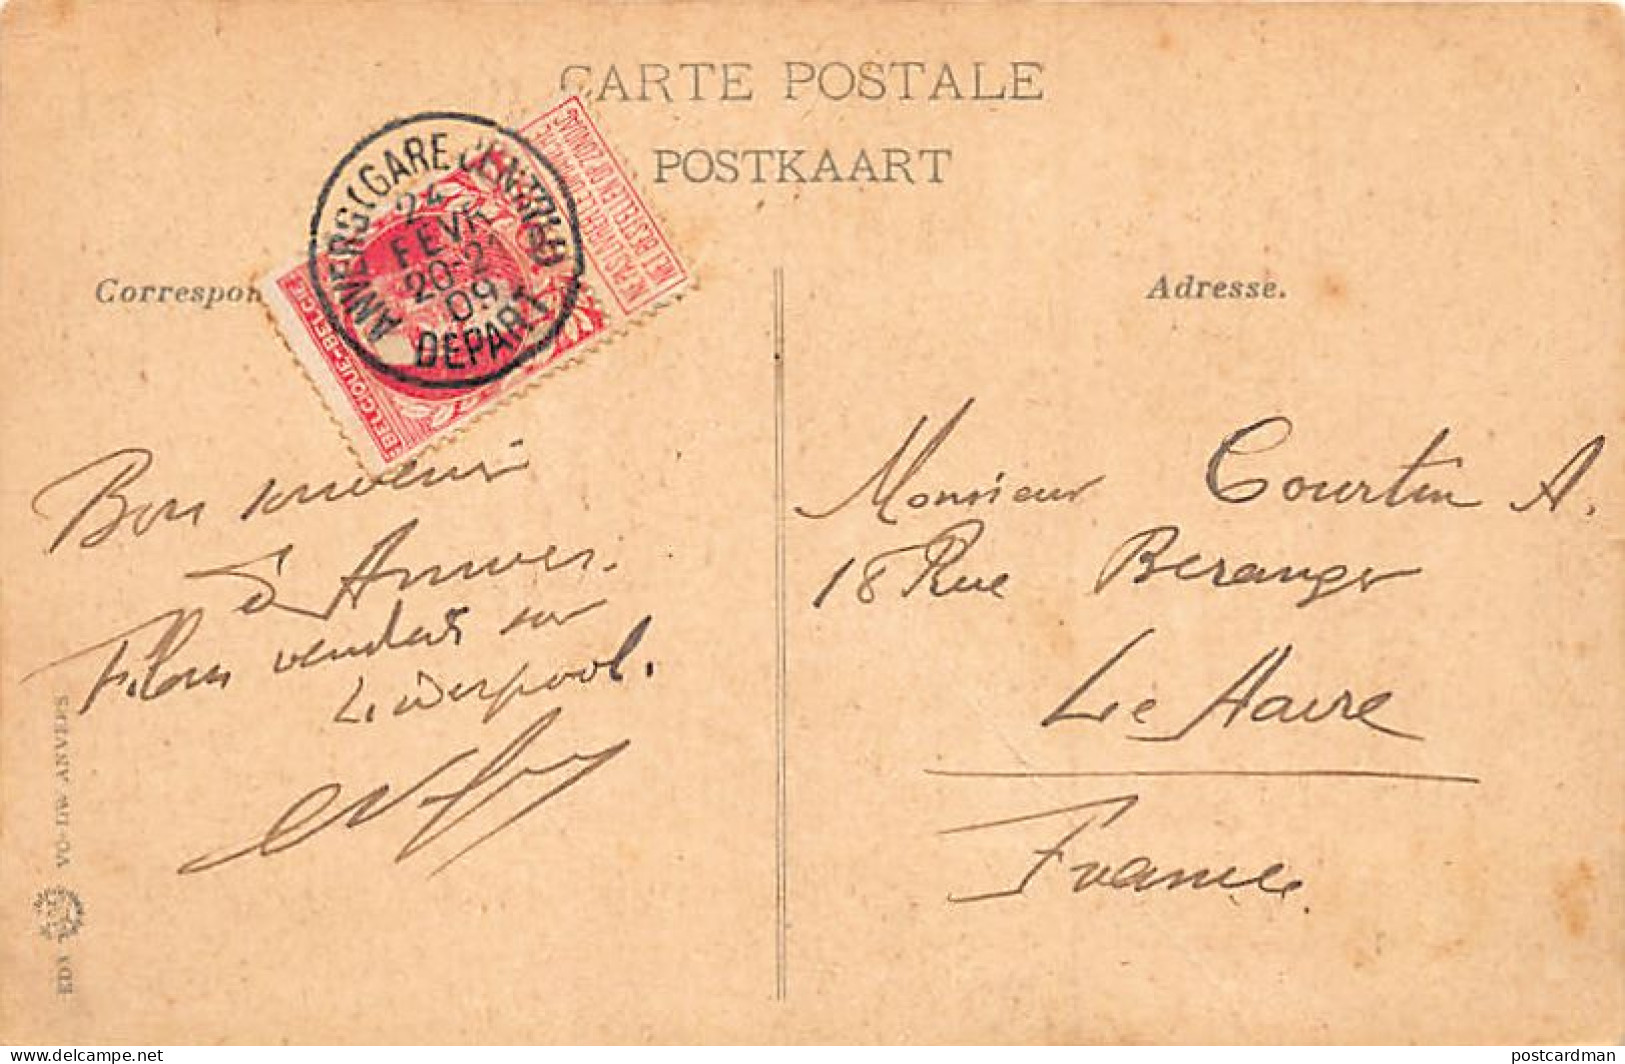 CARTE POSTALE
POSTKAART
ANVERS (GARE CENTRALE)
24
FEVR
20-2
09
DEPART
NE PAS LIVRER LE DIMANCHE
NIET BESTELLEN OP ZONDAG
BELGIQUE-BELGIË
Correspon
Adresse.
Bon souvenir
à Anvers.
Filons vendredi sur
Liverpool.
Monsieur Courtin A.
18 Rue Beranger
Le Havre
France.
EDA VO-HW ANVERS
delcampe.net
postcardman